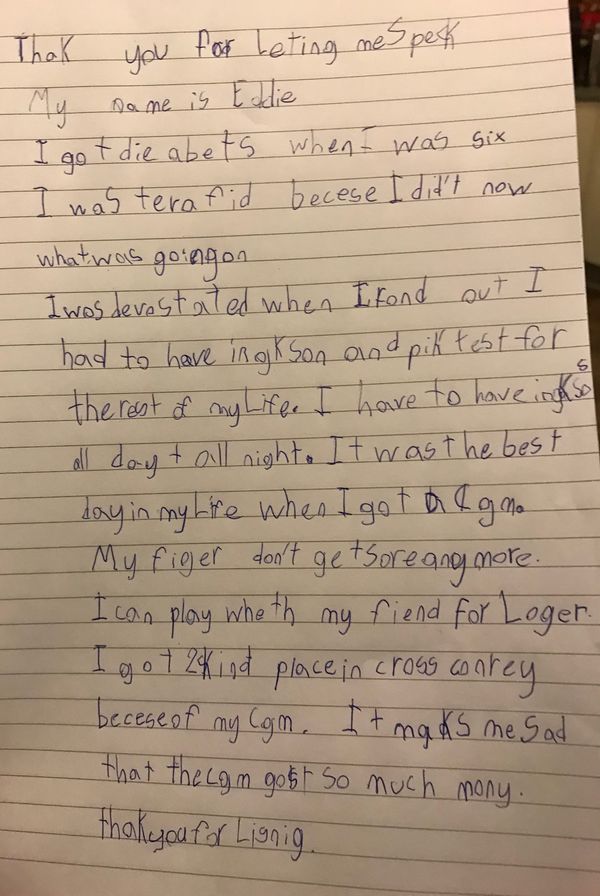 Thak you for Leting me Speck
My name is Eddie
I got die abets when I was six
I was terafid becese I did't now
what was going on
I was devastated when I fond out I
had to have ingkson and pik test for
the rest of my Life. I have to have ingksos
all day + all night. It was the best
day in my Life when I got a Cgm.
My figer don't get sore any more.
I can play wheth my fiend for Loger.
I got 2kind place in cross conrey
becese of my Cgm. It maks me Sad
that the cgm gost so much mony.
thak you for Lisnig.